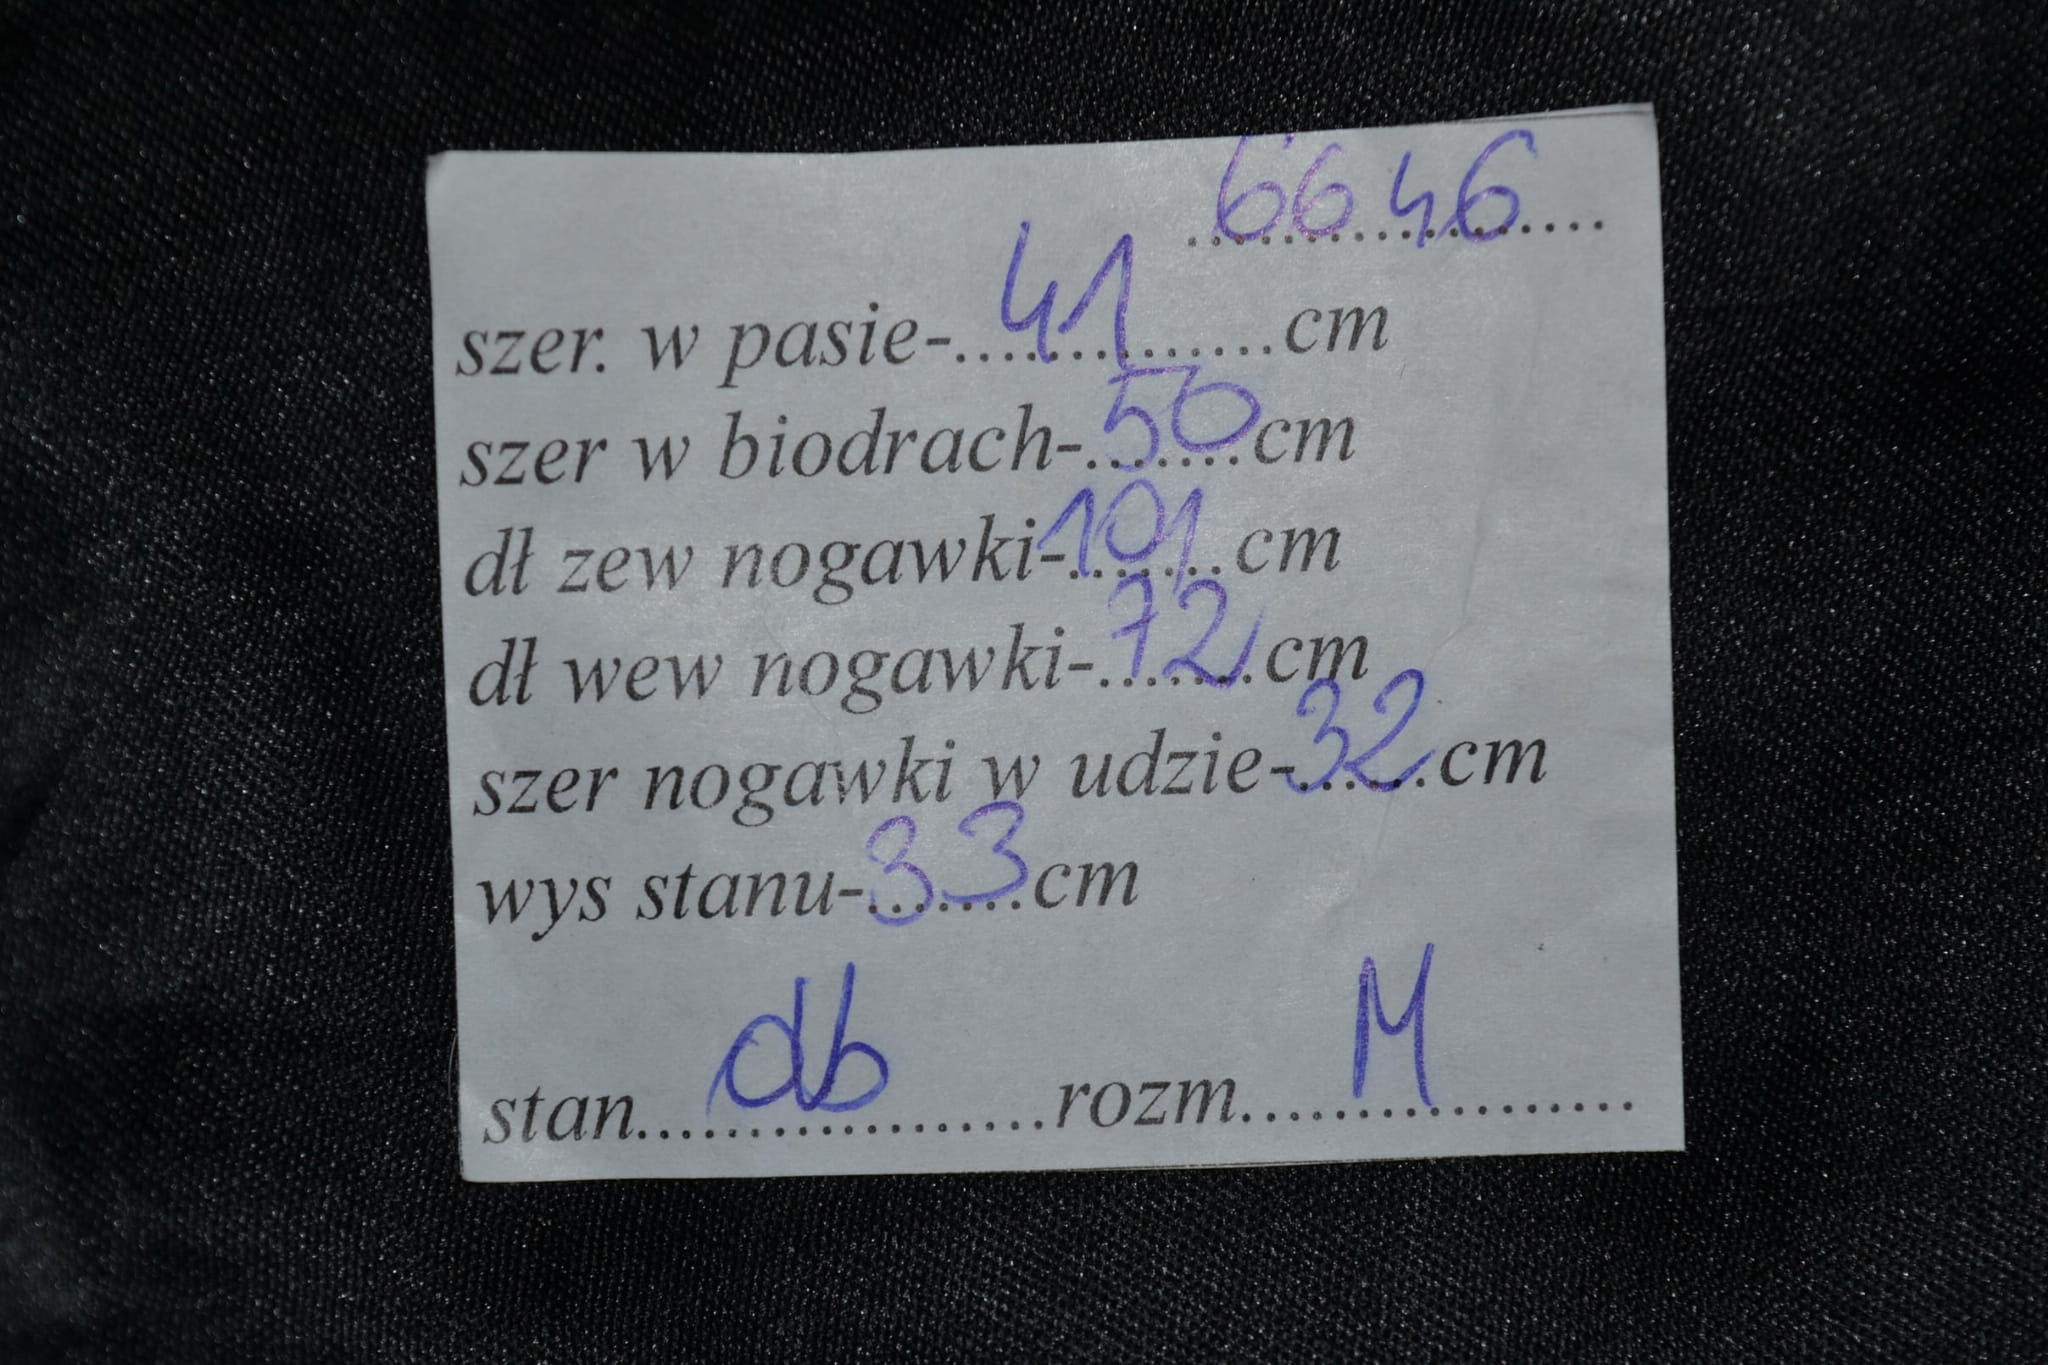 6646
szer. w pasie-41cm
szer w biodrach-50cm
dł zew nogawki-101cm
dł wew nogawki-72cm
szer nogawki w udzie-32cm
wys stanu-33cm
stan....db....rozm....M....